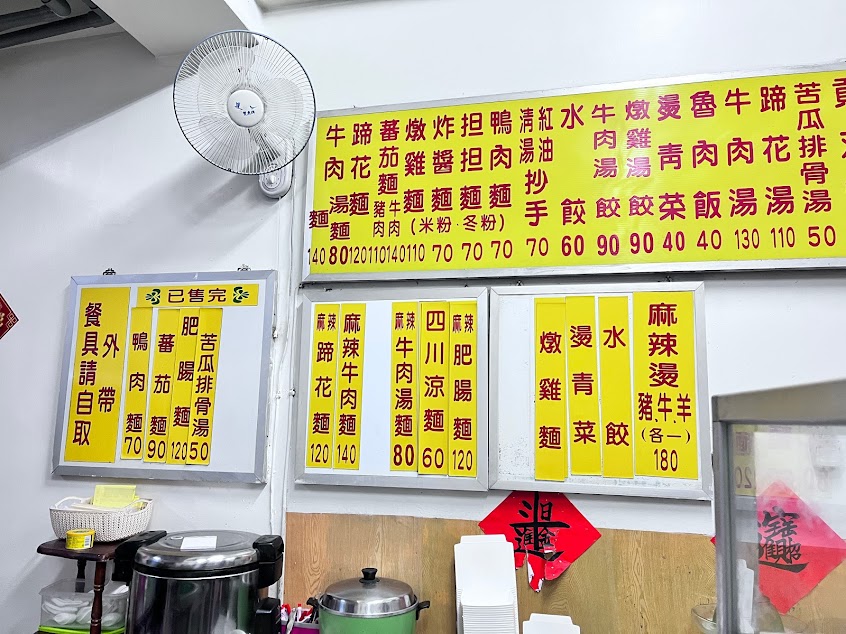 牛肉麵 140
牛肉湯麵 80
蹄花麵 120
蕃茄麵 豬肉 110 牛肉 140
燉雞麵 110
炸醬麵 70
担担麵 70
鴨肉麵 70
(米粉·冬粉)
清湯 紅油 抄手 70
水餃 60
牛肉湯餃 90
燉雞湯餃 90
燙青菜 40
魯肉飯 40
牛肉湯 130
蹄花湯 110
苦瓜排骨湯 50
已售完
餐具請自取
外帶
鴨肉麵 70
蕃茄麵 90
肥腸麵 120
苦瓜排骨湯 50
麻辣蹄花麵 120
麻辣牛肉麵 140
麻辣牛肉湯麵 80
四川涼麵 60
麻辣肥腸麵 120
燉雞麵
燙青菜
水餃
麻辣燙
豬.牛.羊
(各一)
180